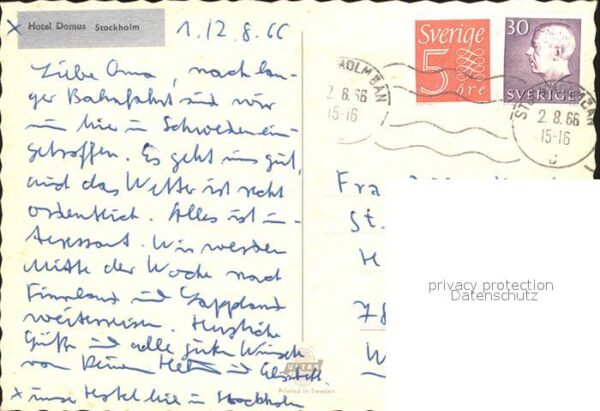 x Hotel Domus Stockholm
1./2. 8. 66
Liebe Oma, nach lan-
ger Bahnfahrt sind wir
nun hier in Schweden ein-
getroffen. Es geht uns gut,
und das Wetter ist recht
ordentlich. Alles ist in-
teressant. Wir werden
Mitte der Woche nach
Finnland und Lappland
weiterreisen. Herzliche
Grüße und alle guten Wünsche
von Deinem und
x unser Hotel hier in Stockholm
Sverige
5
öre
30
SVERIGE
2.8.66
15-16
2.8.66
15-16
Fra
St.
H
78
W
privacy protection
Datenschutz
Printed in Sweden